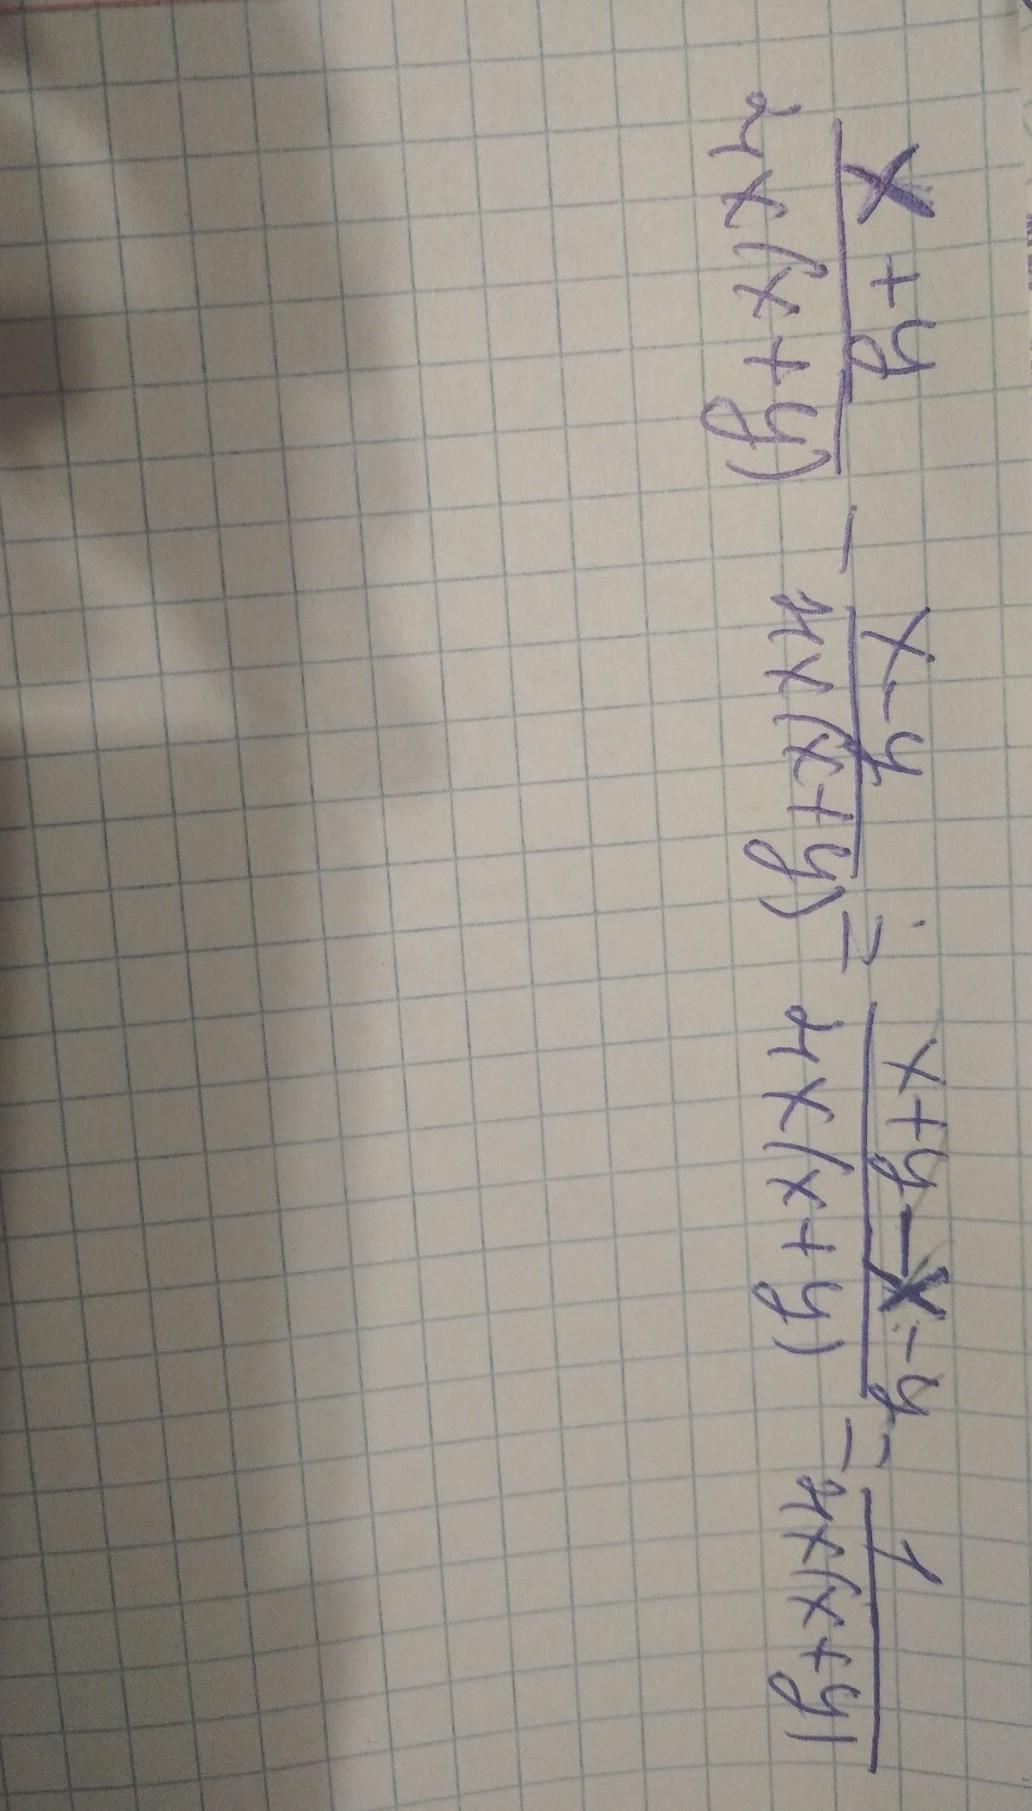 x + y / 4x(x+y) − x−y / 4x(x+y) = x+y−x−y / 4x(x+y) = 1 / 4x(x+y)